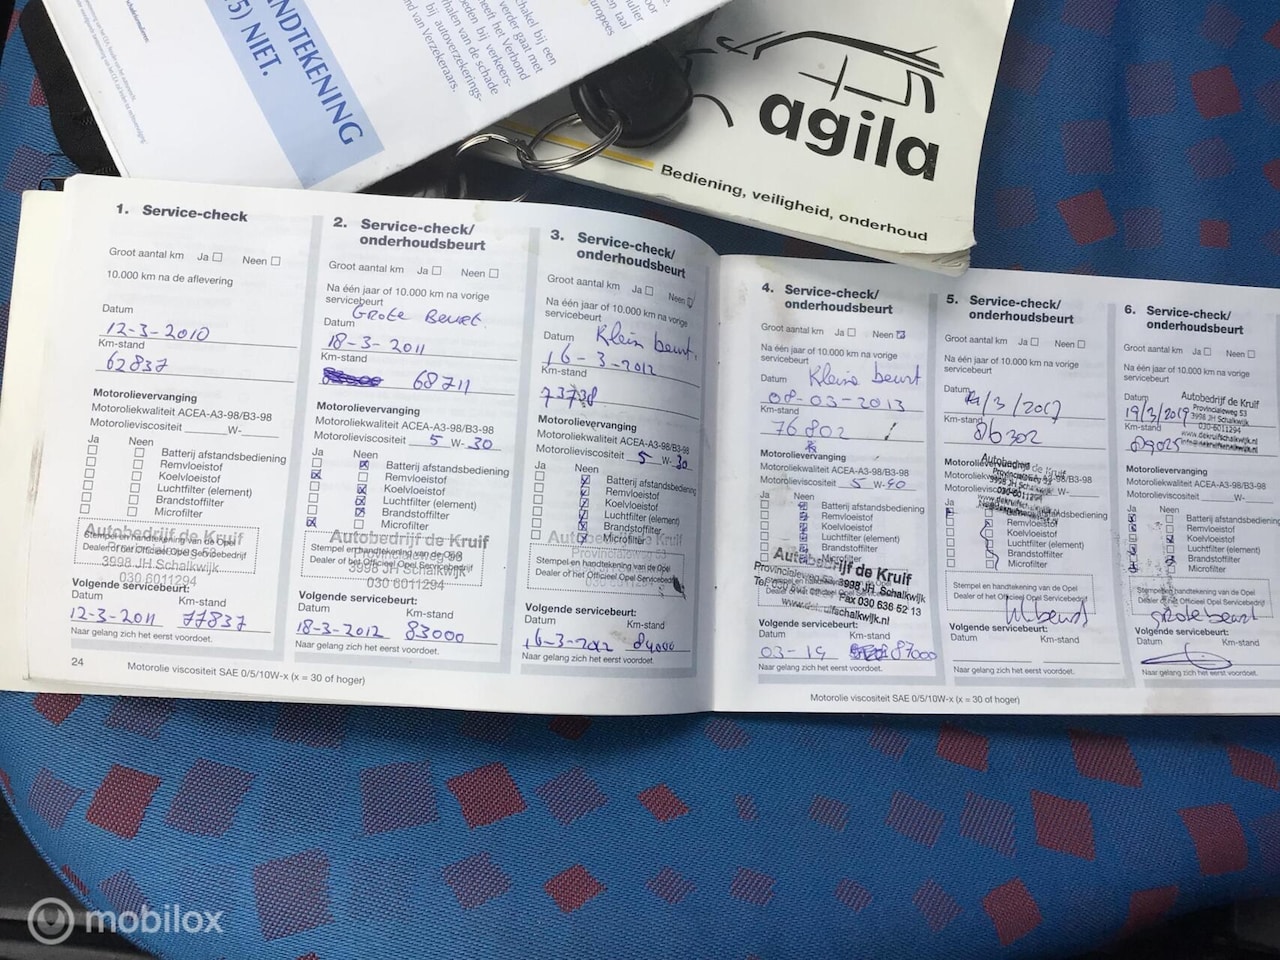 NDTEKENING
5) NIET.
agila
Bediening, veiligheid, onderhoud
1. Service-check
Groot aantal km Ja Neen
10.000 km na de aflevering
Datum
12-3-2010
Km-stand
62837
Motorolievervanging
Motoroliekwaliteit ACEA-A3-98/B3-98
Motorolieviscositeit W-
Ja Neen
Batterij afstandsbediening
Remvloeistof
Koelvloeistof
Luchtfilter (element)
Brandstoffilter
Microfilter
Autobedrijf de Kruif
Stempel en handtekening van de Opel
Dealer of het Officieel Opel Servicebedrijf
3998 JH Schalkwijk
030 6011294
Volgende servicebeurt:
Datum Km-stand
12-3-2011 77837
Naar gelang zich het eerst voordoet.
24
Motorolie viscositeit SAE 0/5/10W-x (x = 30 of hoger)
2. Service-check/
onderhoudsbeurt
Groot aantal km Ja Neen
Na één jaar of 10.000 km na vorige
servicebeurt
Grote Beurt
Datum
18-3-2011
Km-stand
68711
Motorolievervanging
Motoroliekwaliteit ACEA-A3-98/B3-98
Motorolieviscositeit 5 W- 30
Ja Neen
Batterij afstandsbediening
Remvloeistof
Koelvloeistof
Luchtfilter (element)
Brandstoffilter
Microfilter
Autobedrijf de Kruif
Stempel en handtekening van de Opel
Dealer of het Officieel Opel Servicebedrijf
3998 JH Schalkwijk
030 6011294
Volgende servicebeurt:
Datum Km-stand
18-3-2012 83000
Naar gelang zich het eerst voordoet.
3. Service-check/
onderhoudsbeurt
Groot aantal km Ja Neen
Na één jaar of 10.000 km na vorige
servicebeurt
Klein beurt.
Datum
16-3-2012
Km-stand
Motorolievervanging
Motoroliekwaliteit ACEA-A3-98/B3-98
Motorolieviscositeit 5 W- 30
Ja Neen
Batterij afstandsbediening
Remvloeistof
Koelvloeistof
Luchtfilter (element)
Brandstoffilter
Microfilter
Autobedrijf de Kruif
Provincialeweg 53
Stempel en handtekening van de Opel
Dealer of het Officieel Opel Servicebedrijf
Volgende servicebeurt:
Datum Km-stand
84000
Naar gelang zich het eerst voordoet.
4. Service-check/
onderhoudsbeurt
Groot aantal km Ja Neen
Na één jaar of 10.000 km na vorige
servicebeurt
Kleine beurt
Datum
08-03-2013
Km-stand
76802
Motorolievervanging
Motoroliekwaliteit ACEA-A3-98/B3-98
Motorolieviscositeit 5 W-40
Ja Neen
Batterij afstandsbediening
Remvloeistof
Koelvloeistof
Luchtfilter (element)
Brandstoffilter
Microfilter
Autobedrijf de Kruif
3998 JH Schalkwijk
Fax 030 636 52 13
Volgende servicebeurt:
Datum Km-stand
87000
Naar gelang zich het eerst voordoet.
Motorolie viscositeit SAE 0/5/10W-x (x = 30 of hoger)
5. Service-check/
onderhoudsbeurt
Groot aantal km Ja Neen
Na één jaar of 10.000 km na vorige
servicebeurt
Datum
Km-stand
86302
Autobedrijf de Kruif
Remvloeistof
Koelvloeistof
Luchtfilter (element)
Brandstoffilter
Microfilter
Stempel en handtekening van de Opel
Dealer of het Officieel Opel Servicebedrijf
Volgende servicebeurt:
Datum Km-stand
Naar gelang zich het eerst voordoet.
6. Service-check/
onderhoudsbeurt
Groot aantal km Ja Neen
Na één jaar of 10.000 km na vorige
servicebeurt
Autobedrijf de Kruif
Provincialeweg 53
3998 JH Schalkwijk
030-6011294
Datum
19/3/2019
Km-stand
89025
Motorolievervanging
Motoroliekwaliteit ACEA-A3-98/B3-98
Motorolieviscositeit W-
Ja Neen
Batterij afstandsbediening
Remvloeistof
Koelvloeistof
Luchtfilter (element)
Brandstoffilter
Microfilter
grote beurt
Volgende servicebeurt:
Datum Km-stand
Naar gelang zich het eerst voordoet.
mobilox